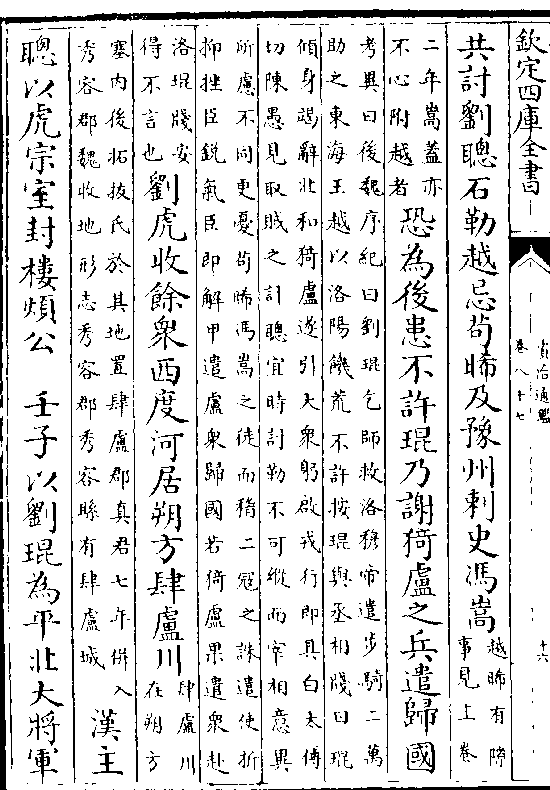 欽定四庫全書
資治通鑑
卷八十七
十六
共討劉聰石勒越忌茍晞及豫州刺史馮嵩
越晞有隙
事見上卷
二年嵩蓋亦
不心附越者
恐為後患不許琨乃謝猗盧之兵遣歸國
考異曰後魏序紀曰劉琨乞師救洛穆帝遣步騎二萬
助之東海王越以洛陽饑荒不許按琨與丞相牋曰琨
傾身竭辭北和猗盧遂引大衆躬啟戎行即具白太傅
切陳愚見取賊之計聰宜時討勒不可縱而宰相意異
所慮不同更憂茍晞馮嵩之徒而稽二冦之誅遣使折
抑挫臣銳氣臣即解甲遣盧衆歸國若猗盧果遣衆赴
洛琨牋安
得不言也
劉虎收餘衆西度河居朔方肆盧川
肆盧川
在朔方
塞內後拓拔氏於其地置肆盧郡真君七年併入
秀容郡魏收地形志秀容郡秀容縣有肆盧城
漢主
聰以虎宗室封樓煩公 壬子以劉琨為平北大將軍